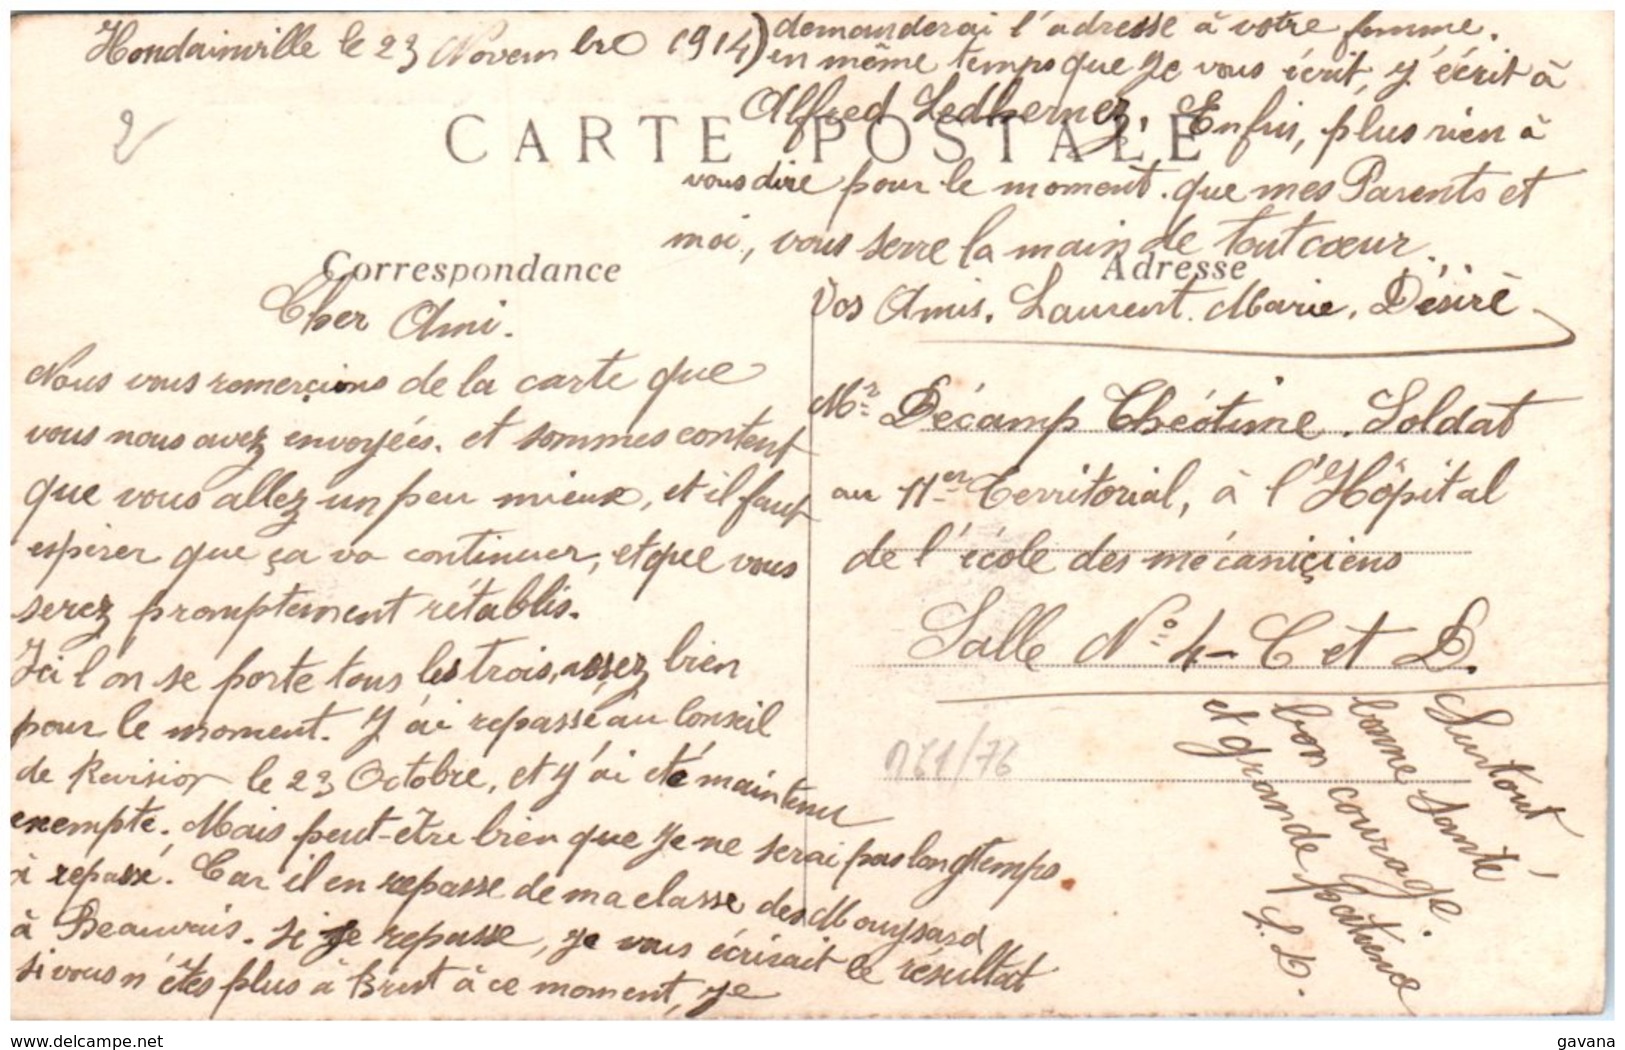 Hondainville le 23 Novembre 1914)
2
CARTE POSTALE
Correspondance
Cher Ami.
Nous vous remerçions de la carte que
vous nous avez envoyées. et sommes content
que vous allez un peu mieux, et il faut
espérer que ça va continuer, et que vous
serez promptement rétablis.
Ici l'on se porte tous les trois, assez bien
pour le moment. J'ai repassé au Conseil
de Revision le 23 Octobre, et j'ai été maintenu
exempté. Mais peut-être bien que je ne serai pas longtemps
à repassé. Car il en repasse de ma classe des
à Beauvais. si je repasse, je vous écrirait le résultat
si vous n'êtes plus à Brest à ce moment, je
demanderai l'adresse à votre femme.
en même temps que je vous écrit, j'écrit à
Alfred Ledhernez. Enfin, plus rien à
vous dire pour le moment. que mes Parents et
moi, vous serre la main de tout cœur.
Adresse
Vos Amis. Laurent. Marie. Désiré
Mr Décamp Théotime. Soldat
au 11er Territorial, à l'Hôpital
de l'école des mécaniçiens
Salle No 4 - C et D.
Surtout
bonne Santé
bon courage.
et grande patience
L. D.
961/76
delcampe.net
gavana